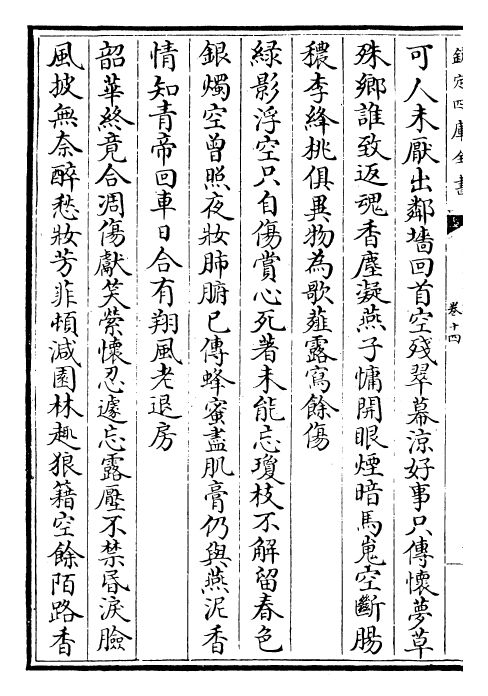 欽定四庫全書
卷十四
可人未厭出鄰墻回首空殘翠幕涼好事只傳懷夢草
殊鄉誰致返魂香塵凝燕子慵開眼煙暗馬嵬空斷腸
穠李絳桃俱異物為歌薤露寫餘傷
緑影浮空只自傷賞心死著未能忘瓊枝不解留春色
銀燭空曾照夜妝肺腑已傳蜂蜜盡肌膏仍與燕泥香
情知青帝回車日合有翔風老退房
韶華終竟合凋傷獻笑縈懷忍遽忘露壓不禁㫯淚臉
風披無奈醉愁妝芳菲頓減園林趣狼籍空餘陌路香